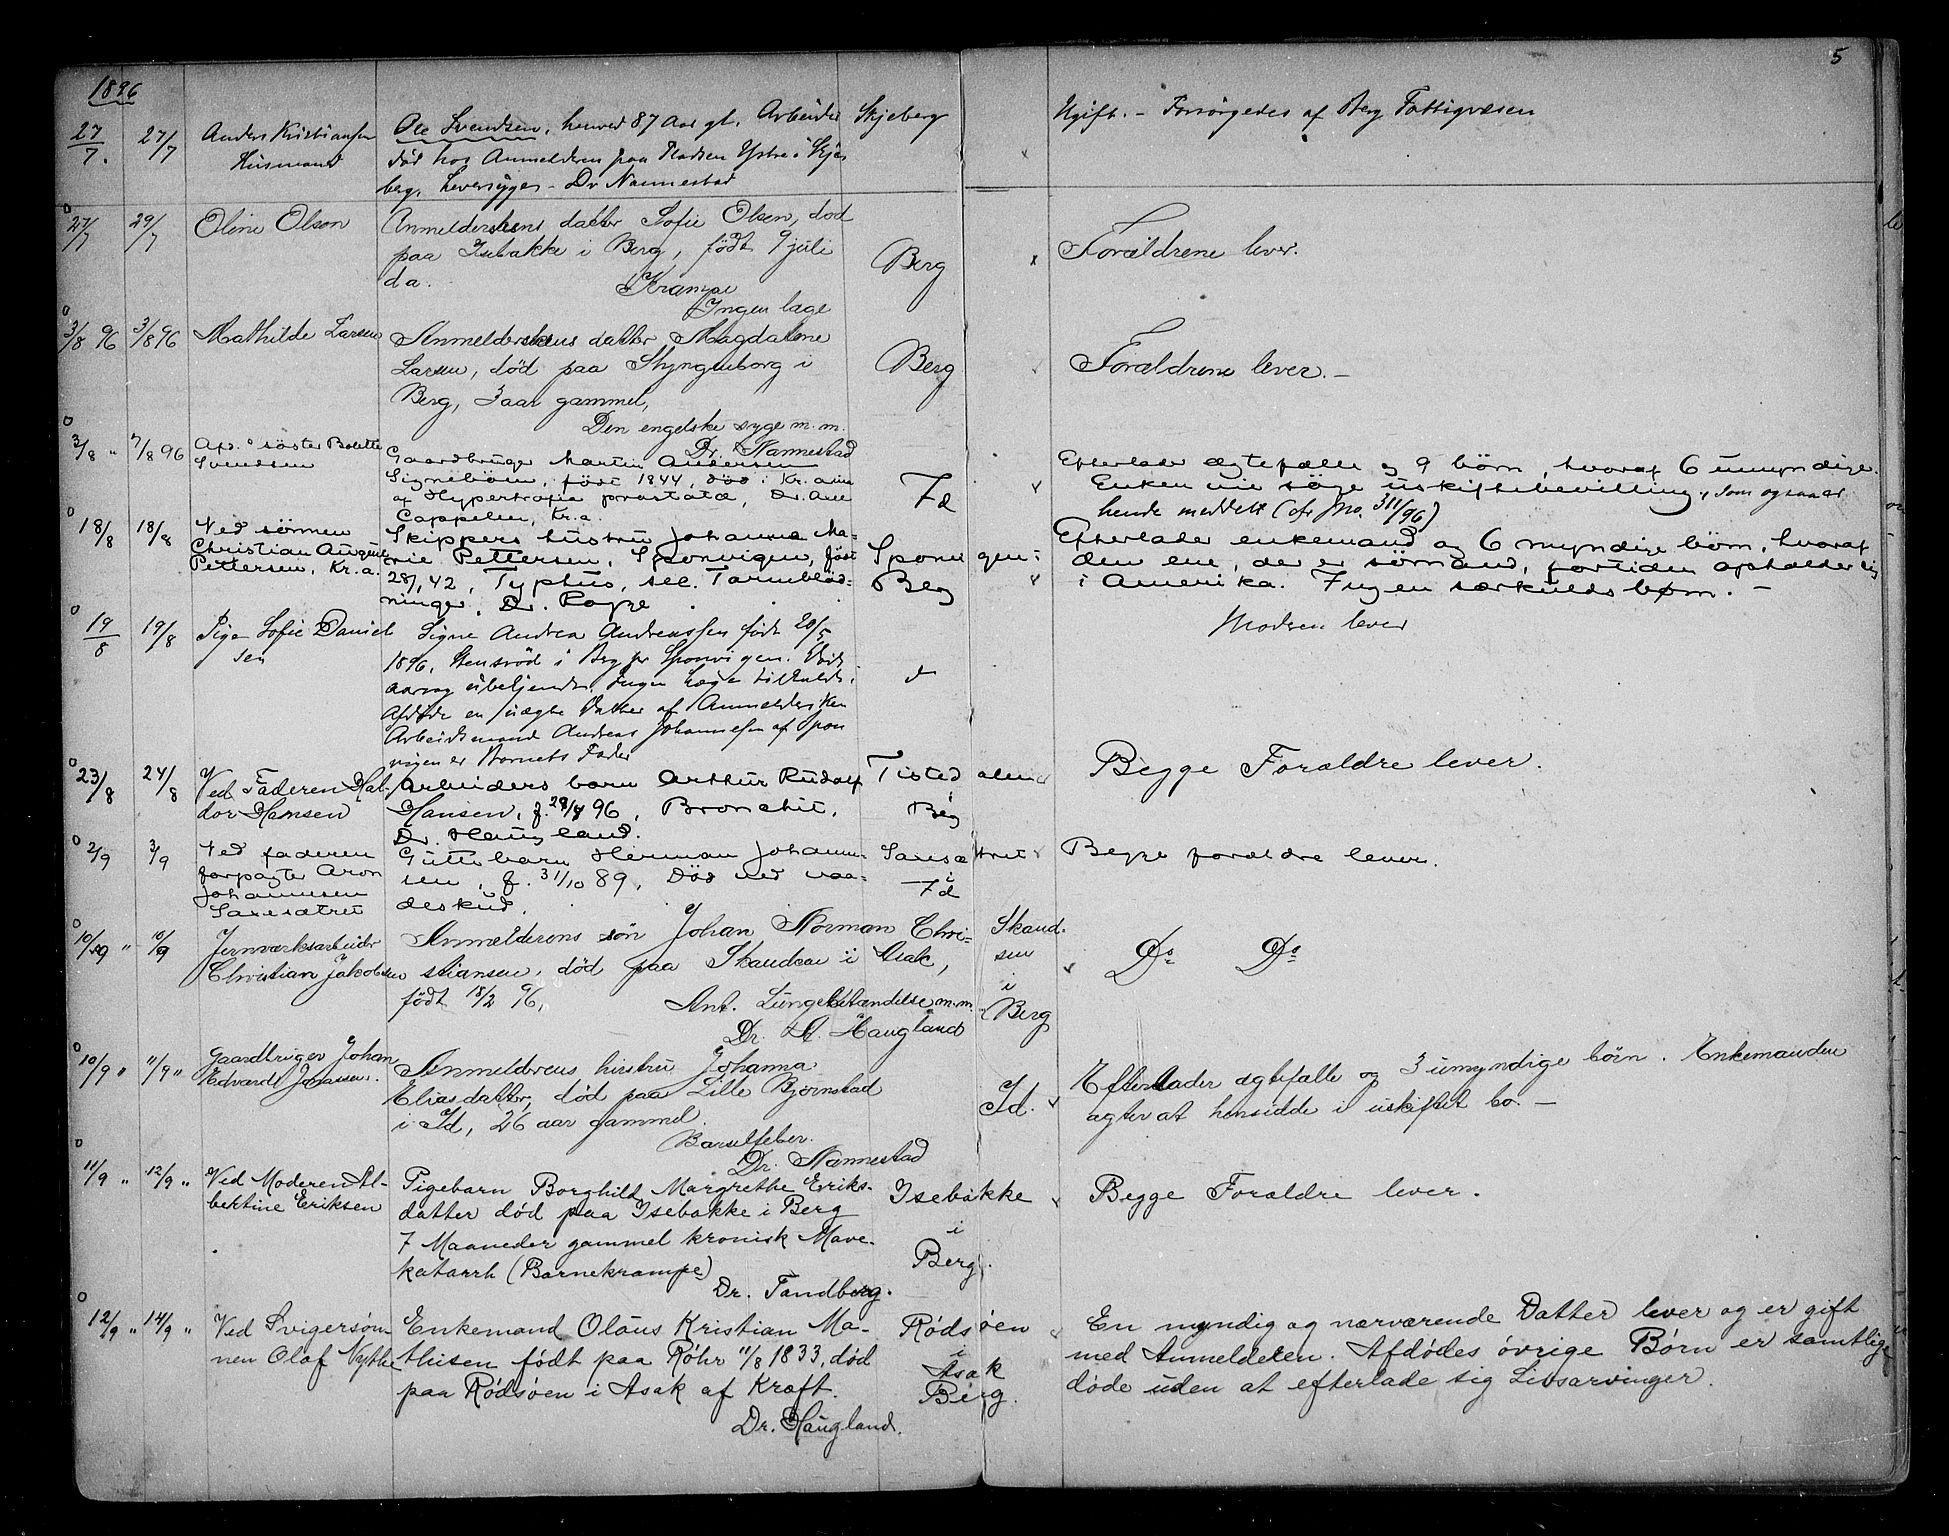 5
1896
27/7. 27/7 Anders Kristiansen Ole Svendsen, henved 87 Aar gl. Arbeider Skjeberg Ugift. - Forsørgedes af Berg Fattigvæsen
Husmand død hos Anmelderen paa Pladsen Ystre i Skje
berg. Leversyge - Dr Nannestad
27/7 29/7 Oline Olson Anmelderskens datter Sofie Olsen, død
paa Isebakke i Berg, født 9 juli Berg Forældrene lever.
d a. Krampe
Ingen læge
3/8 96 3/8 96 Mathilde Larsen Anmelderskens datter Magdalene
Larsen, død paa Slyngenborg i Berg Forældrene lever. -
Berg, 3 aar gammel,
Den engelske syge m. m.
Dr. Nannestad
3/8 " 7/8 96 Afd. søster Bolette Gaardbruger Martin Andersen Efterlader ægtefælle og 9 børn, hvoraf 6 umyndige.
Svendsen Signebøen, født 1844, død i Kr.ania Id Enken vil søge uskiftebevilling, som ogsaa er
af Hypertrofia prostatæ, Dr. Cappelen, Kr.a. hende meddelt (cfr Jno. 311/96)
18/8 18/8 Ved sønnen Skippers hustru Johanne Ma- Efterlader enkemand og 6 myndige børn, hvoraf
Christian August rie Pettersen, Sponvigen, født Sponvigen den ene, der er sømand, fortiden opholder sig
Pettersen, Kr.a. 28/1 42, Typhus, sec. Tarmblød- Berg i Amerika. Ingen særkuldsbørn. -
ninger, Dr. Roye
19/8 19/8 Pige Sofie Daniel Signe Andrea Andreassen født 20/5 Modren lever
sen 1896, Stensrød i Berg pr Sponvigen. Døds d
aarsag ubekjendt. Ingen Læge tilkaldt.
Afdøde en uægte Datter af Anmeldersken
Arbeidsmand Andreas Johannesen af Spon
vigen er Barnets Fader
23/8 24/8 Ved Faderen Hal- Arbeiders barn Arthur Rudolf Tistedalen Begge Forældre lever.
dor Hansen Hansen, f. 28/4 96, Bronchit, i Berg
Dr. Haugland.
2/9 3/9 Ved faderen Guttebarn Herman Johann- Saxesætret Begge forældre lever.
forpagter Aron sen, f. 31/10 89, Død ved vaa- i Id
Johannesen deskud.
Saxesætret
10/9 " 10/9 Jernværksarbeider Anmelderens søn Johan Norman Chri- Skand-
Christian Jakobsen stiansen, død paa Skandsen i Asak, sen Do Do
født 18/2 96, Ant. Lungebetændelse m.m. i Berg
Dr. A. Haugland
10/9 " 11/9 " Gaardbruger Johan Anmelderens hustru Johanna Efterlader ægtefælle og 3 umyndige børn. Enkemanden
Edvard Johansen. Eliasdatter, død paa Lille Bjørnstad Id. agter at hensidde i uskiftet bo. -
i Id, 26 aar gammel.
Barselfeber.
Dr. Nannestad
11/9 " 12/9 " Ved Moderen Al- Pigebarn Borghild Margrethe Eriks- Isebakke Begge Forældre lever.
bertine Eriksen datter død paa Isebakke i Berg i
7 Maaneder gammel kronisk Mave- Berg.
katarrh (Barnekrampe)
Dr. Tandberg.
12/9 " 14/9 " Ved Svigersøn- Enkemand Olaus Kristian Ma- Rødsøen En myndig og nærværende Datter lever og er gift
nen Olaf Nythe thisen født paa Røhr 11/8 1833, død i Asak med Anmelderen. Afdødes øvrige Børn er samtlige
paa Rødsøen i Asak af Kræft. Berg. døde uden at efterlade sig Livsarvinger.
Dr. Haugland.